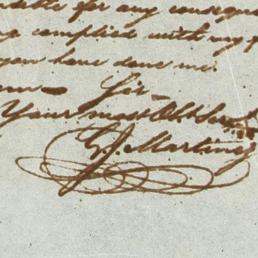 for any consequ
complied with my
you have done me.
Sir
Your most Obt Serv
G. J. Martinez